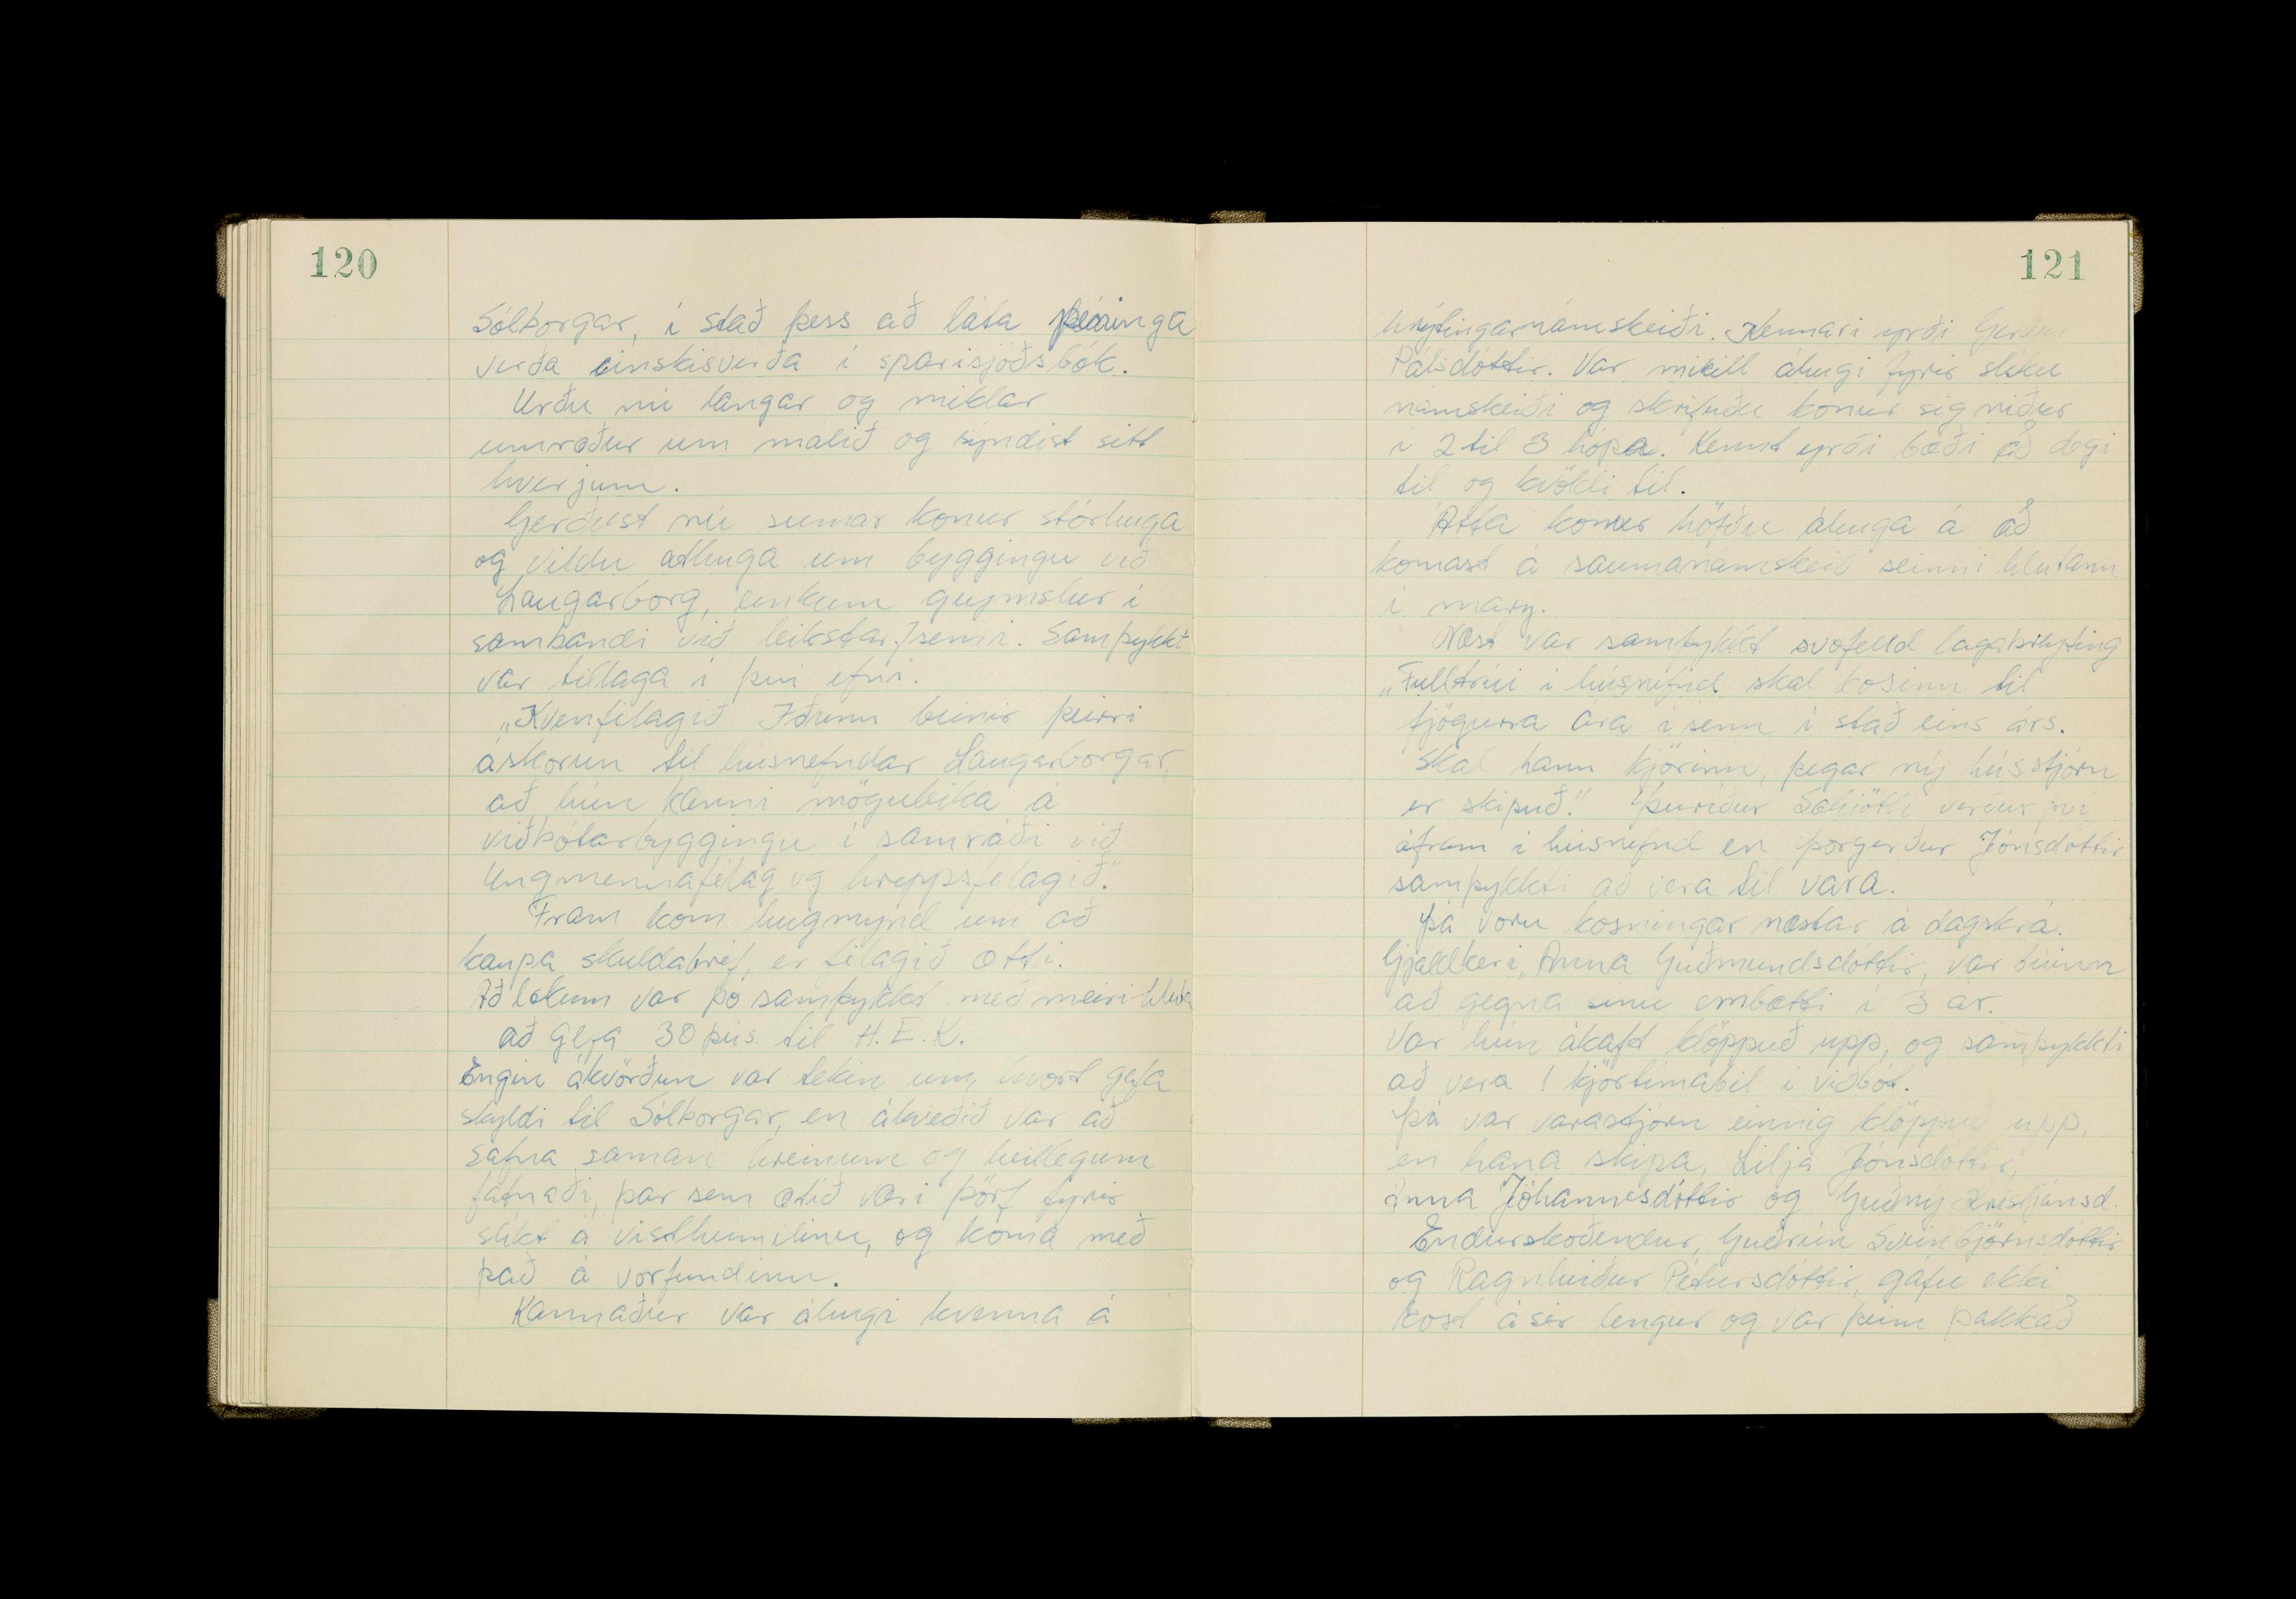 120
Sólborgar, í stað þess að láta peninga
verða einskisverða í sparisjóðsbók.
Urðu nú langar og miklar
umræður um málið og sýndist sitt
hverjum.
Gerðust nú sumar konur stórhuga
og vildu athuga um byggingu við
Laugarborg, einkum geymslur í
sambandi við leikstarfsemi. Samþykkt
var tillaga í því efni.
„Kvenfélagið Iðunn beinir þeirri
áskorun til húsnefndar Laugarborgar,
að hún kanni möguleika á
viðbótarbyggingu í samráði við
Ungmennafélag og hreppsfélagið."
Fram kom hugmynd um að
kaupa skuldabréf, er félagið ætti.
Að lokum var þó samþykkt með meiri hluta
að gefa 30 þús. til H.E.K.
Engin ákvörðun var tekin um, hvort gefa
skyldi til Sólborgar, en ákveðið var að
safna saman hreinum og heillegum
fatnaði, þar sem ætíð væri þörf fyrir
slíkt á vistheimilinu, og koma með
það á vorfundinn.
Kannaður var áhugi kvenna á
121
hnýtingarnámskeiði. Kennari yrði Gerður
Pálsdóttir. Var mikill áhugi fyrir slíku
námskeiði og skrifuðu konur sig niður
í 2 til 3 hópa. Kennt yrði bæði að degi
til og kvöldi til.
Átta konur höfðu áhuga á að
komast á saumanámskeið seinni hlutann
í marz.
Næst var samþykkt svofelld lagabreyting
„Fulltrúi í húsnefnd skal kosinn til
fjögurra ára í senn í stað eins árs.
Skal hann kjörinn, þegar ný hússtjórn
er skipuð." Þuríður Schiöth verður því
áfram í húsnefnd en Þorgerður Jónsdóttir
samþykkti að vera til vara.
Þá voru kosningar næstar á dagskrá.
Gjaldkeri, Anna Guðmundsdóttir, var búinn
að gegna sínu embætti í 3 ár.
Var hún ákaft klöppuð upp, og samþykkti
að vera 1 kjörtímabil í viðbót.
Þá var varastjórn einnig klöppuð upp,
en hana skipa, Lilja Jónsdóttir,
Anna Jóhannesdóttir og Guðný Kristjánsd.
Endurskoðendur, Guðrún Sveinbjörnsdóttir
og Ragnheiður Pétursdóttir, gáfu ekki
kost á sér lengur og var þeim þakkað